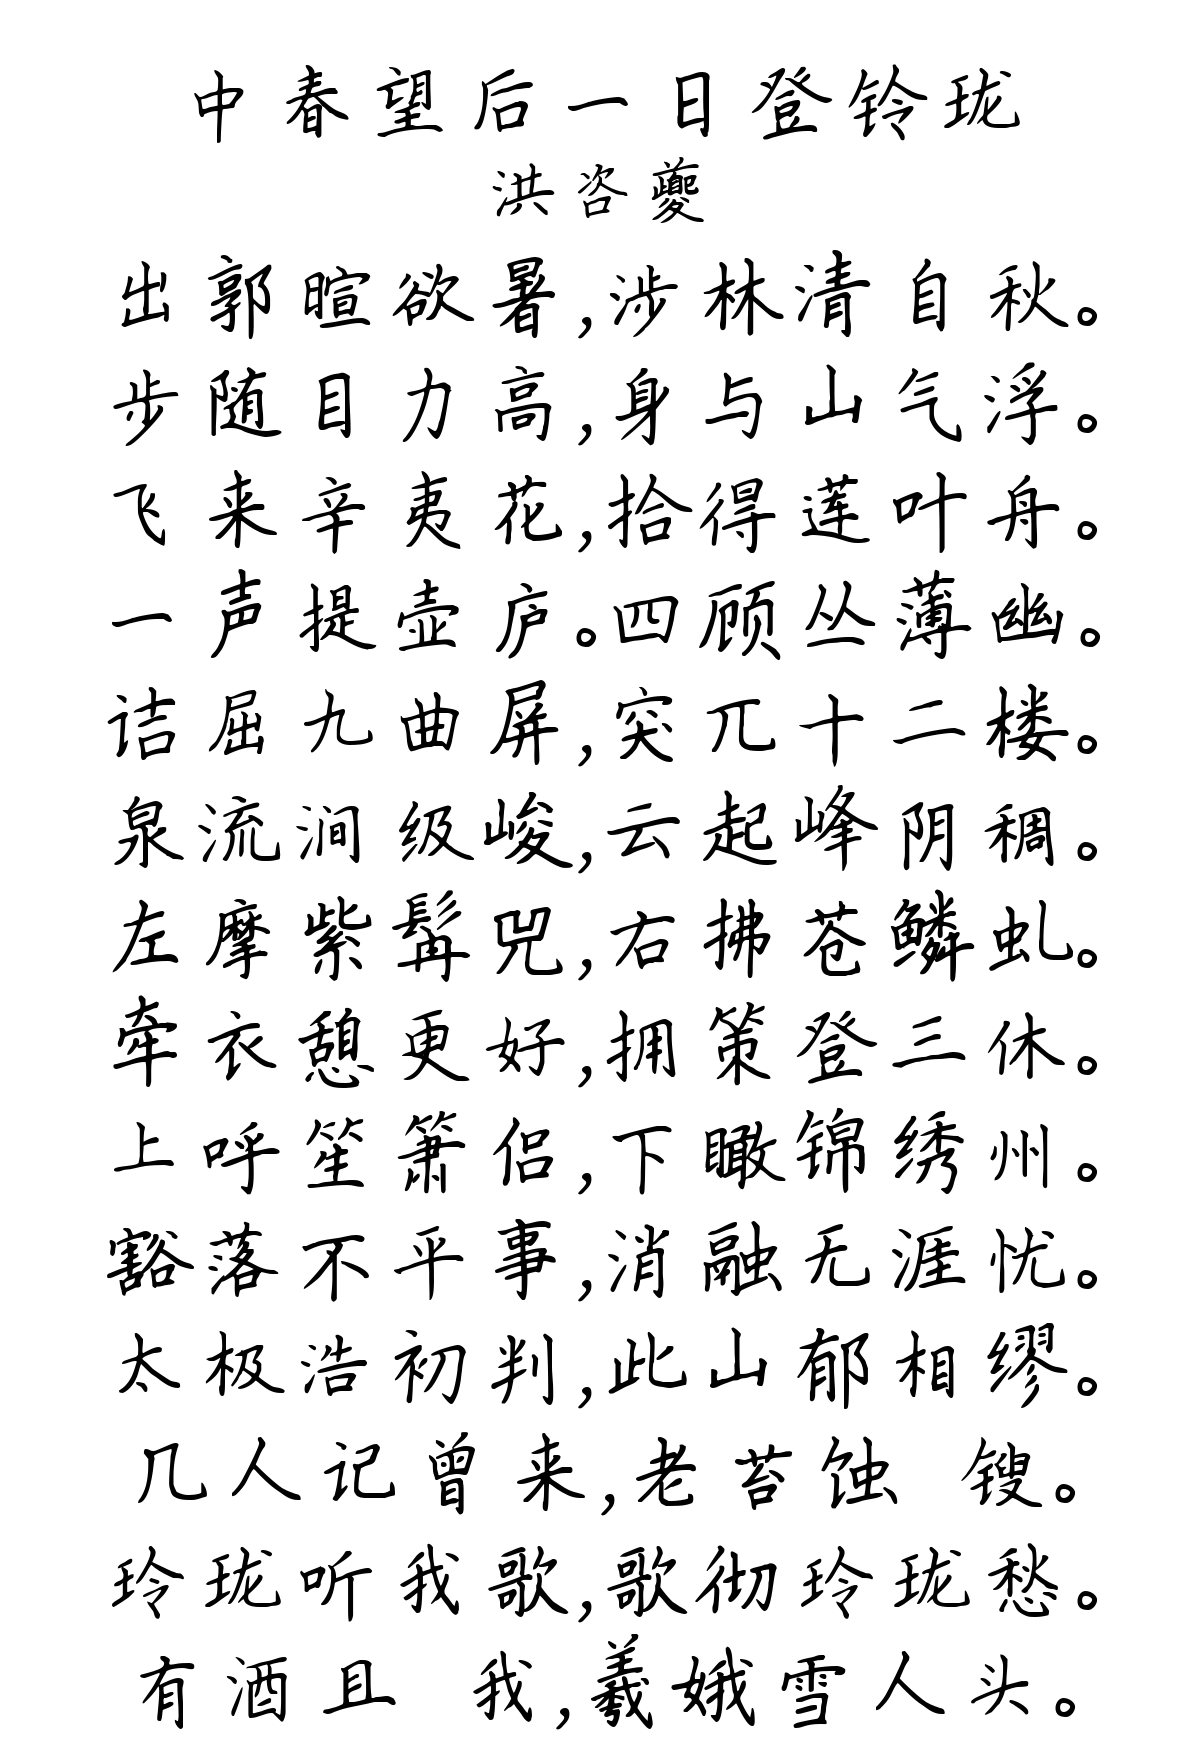 中春望后一日登铃珑
洪咨夔
出郭暄欲暑,涉林清自秋。
步随目力高,身与山气浮。
飞来辛夷花,拾得莲叶舟。
一声提壶庐。四顾丛薄幽。
诘屈九曲屏,突兀十二楼。
泉流涧级峻,云起峰阴稠。
左摩紫髯兕,右拂苍鳞虬。
牵衣憩更好,拥策登三休。
上呼笙箫侣,下瞰锦绣州。
豁落不平事,消融无涯忧。
太极浩初判,此山郁相缪。
几人记曾来,老苔蚀 锼。
玲珑听我歌,歌彻玲珑愁。
有酒且 我,羲娥雪人头。